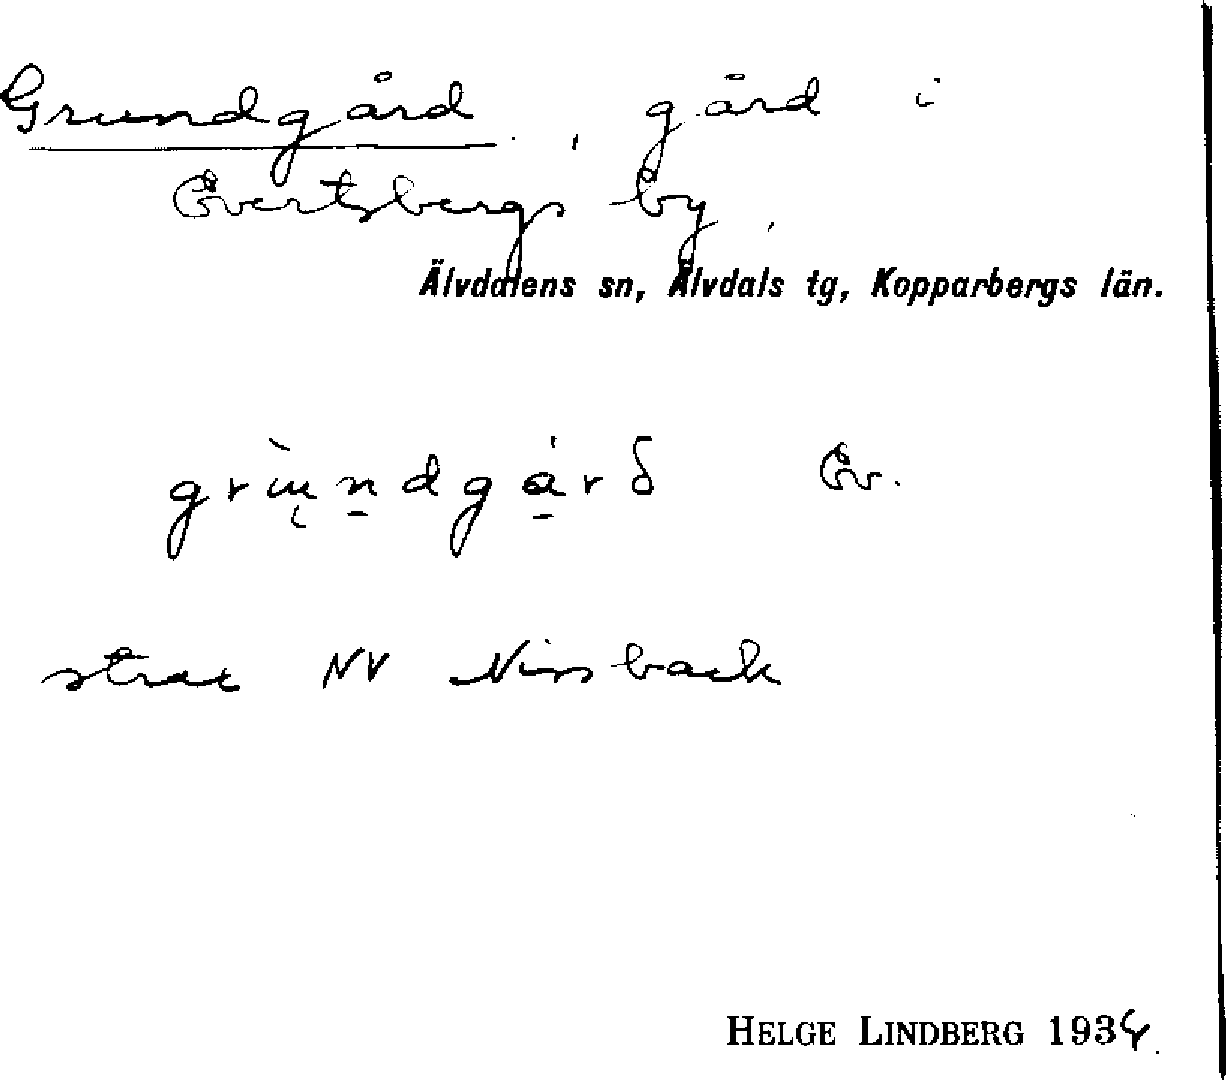 Grundgård, gård i
Evertsbergs by,
Älvdalens sn, Älvdals tg, Kopparbergs län.
Ev.
strax NV Nissback
HELGE LINDBERG 1934.